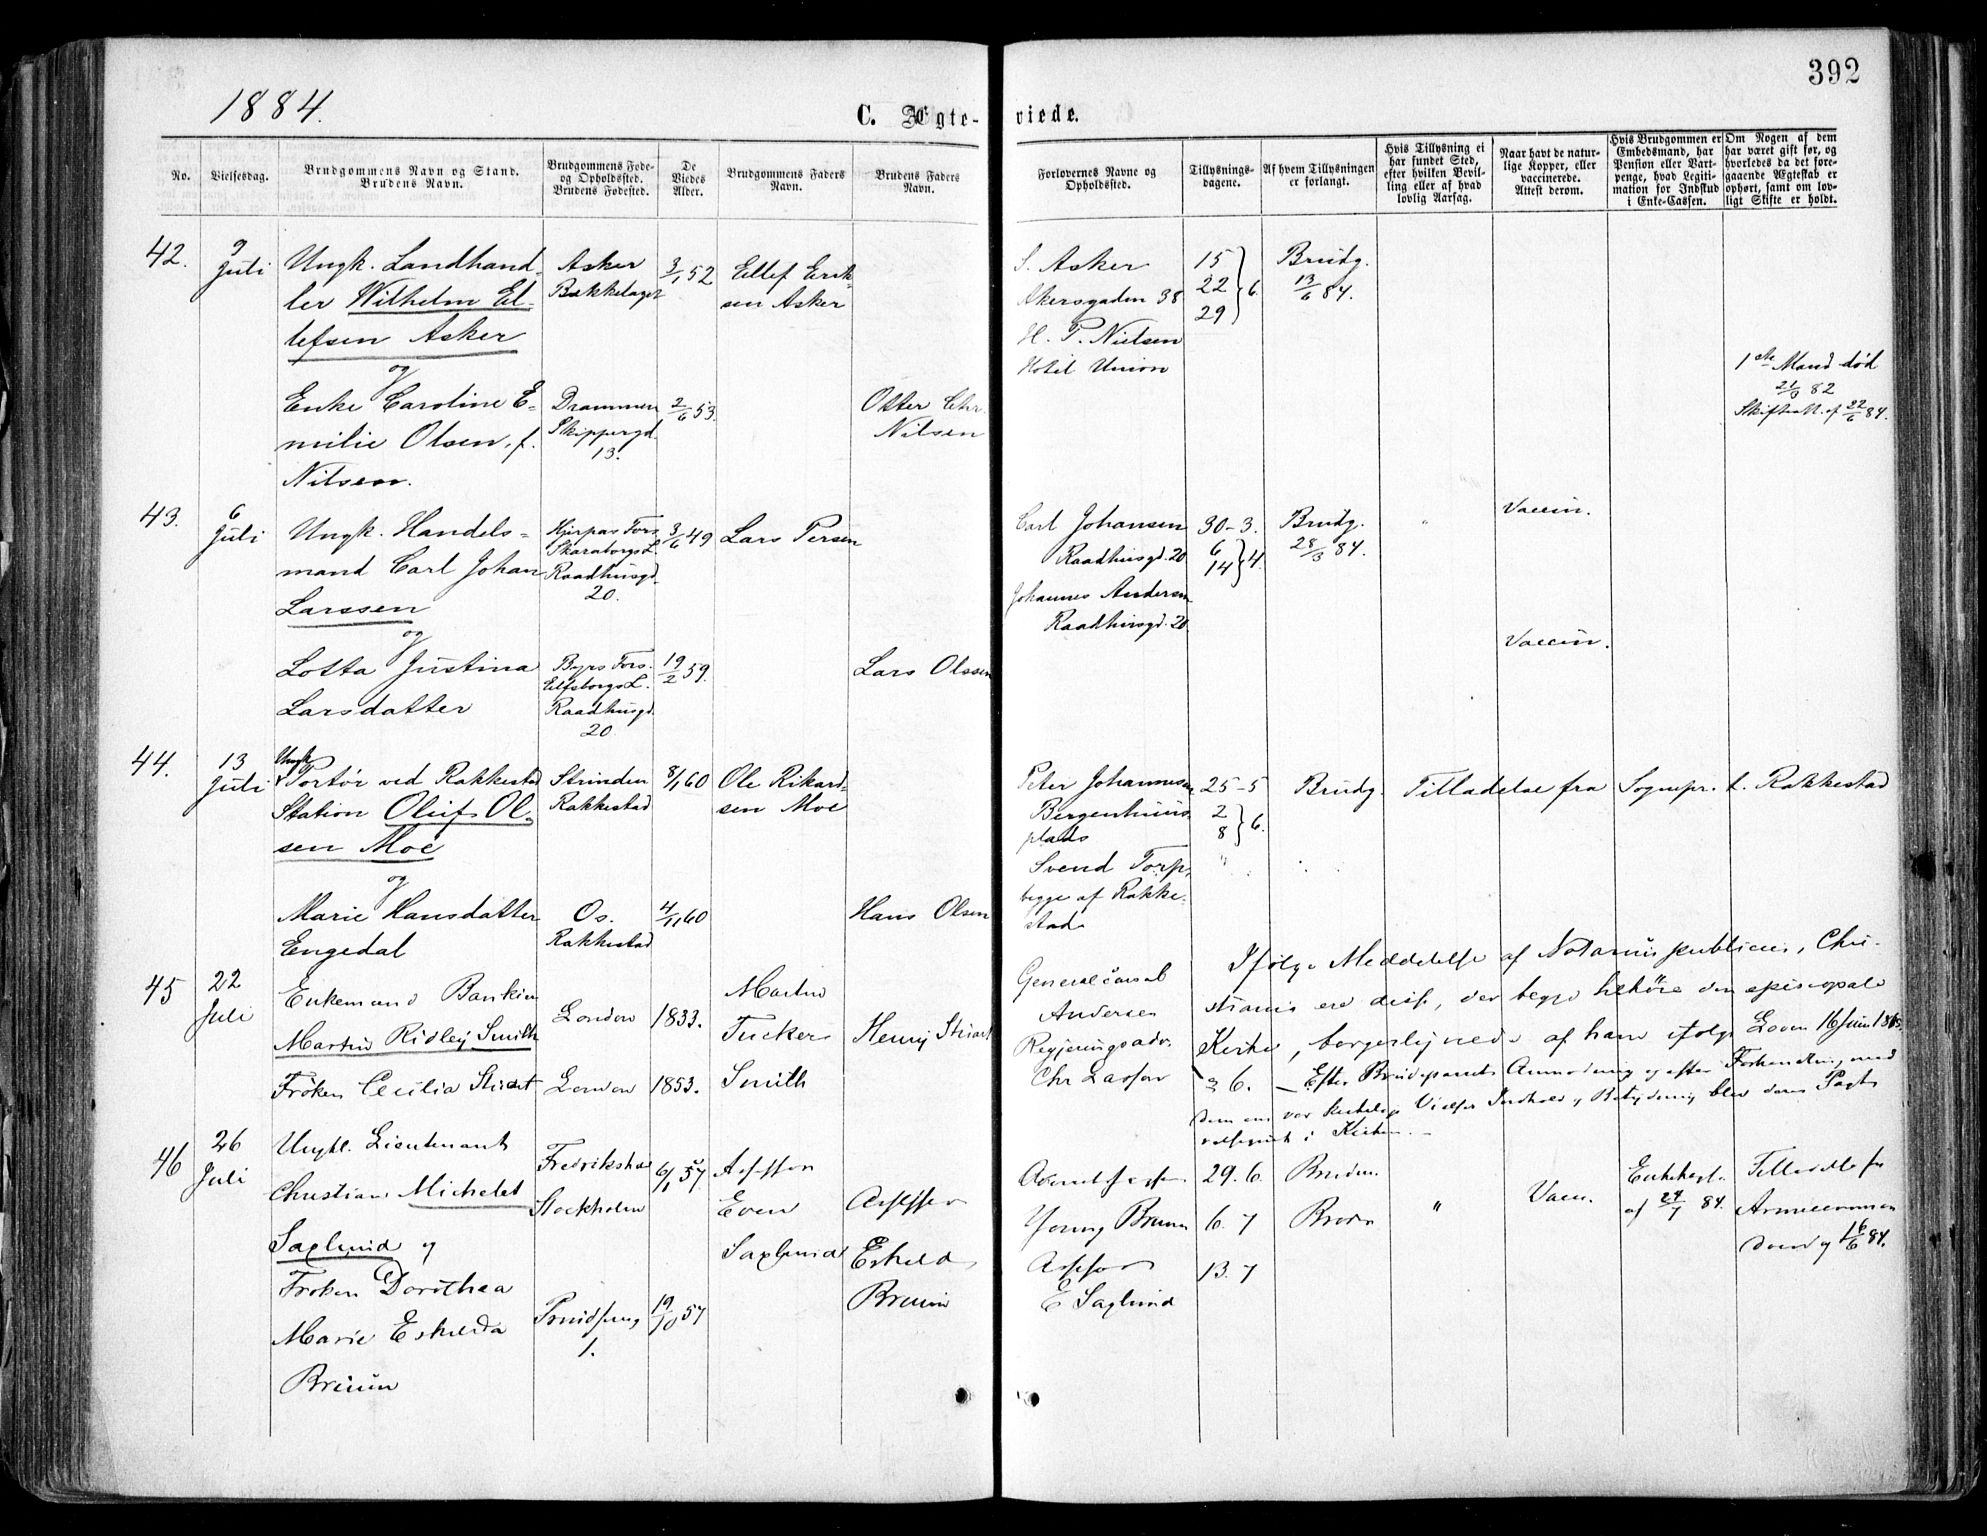 392
1884.
C. Ægte-
viede.
No.
Vielsesdag.
Brudgommens Navn og Stand.
Brudens Navn.
Brudgommens Føde-
og Opholdssted.
Brudens Fødested.
De
Viedes
Alder.
Brudgommens Faders
Navn.
Brudens Faders
Navn.
Forlovernes Navne og
Opholdssted.
Tillysnings-
dagene.
Af hvem Tillysningen
er forlangt.
Hvis Tillysning ei
har fundet Sted,
efter hvilken Bevil-
ling eller af hvad
lovlig Aarsag.
Naar havt de natur-
lige Kopper, eller
vaccinerede.
Attest derom.
Hvis Brudgommen er
Embedsmand, har
Pension eller Vart-
penge, hvad Legiti-
mation for Indskud
i Enke-Cassen.
Om Nogen af dem
har været gift før, og
hvorledes da det fore-
gaaende Ægteskab er
ophørt, samt om lov-
ligt Skifte er holdt.
42.
9
Juli
Ungk. Landhand-
ler Wilhelm El-
lefsen Asker
og
Enke Caroline E-
milie Olsen, f.
Nilsen.
Asker
Bækkelaget
Drammen
Skippergd.
13.
3/1 52
2/6 53.
Ellef Erik-
sen Asker
Otter Chr.
Nilsen
S. Asker
Akersgaden 38
H. P. Nielsen
Hotel Union
15
22 } 6.
29
Brudg.
13/6 84.
1ste Mand død
21/9 82
Skifteatt. af 22/6 84.
43.
6
Juli
Ungk. Handels-
mand Carl Johan
Larssen
og
Lotta Justina
Larsdatter
Hjerpas Fors.
Skaraborgs L.
Raadhusgd.
20.
Byrs Fors.
Elfsborgs L.
Raadhusgd.
20
3/6 49
19/2 59.
Lars Persen
Lars Olssen
Carl Johansen
Raadhusgd. 20
Johannes Andersen
Raadhusgd. 20
30-3.
6
14 } 4.
Brudg.
28/3 84.
"
Vaccin.
Vaccin.
44.
13
Juli
Ungk.
Portør ved Rakkestad
Station Oluf Ol-
sen Moe
og
Marie Hansdatter
Engedal
Strinden
Rakkestad
Os.
Rakkestad
8/1 60
4/11 60
Ole Rikard-
sen Moe
Hans Olsen
Peter Johannesen
Bergenhuus
plads
Svend Torp,
begge af Rakke-
stad
25-5
2
8 } 6.
Brudg.
Tilladelse fra Sognepr. t. Rakkestad
45
22
Juli
Enkemand Bankier
Martin Ridley Smith
Frøken Cecilia Stuart
London
London
1833.
1853.
Martin
Tucker
Smith
Henry Stuart
Generalconsul
Andersen
Regjeringsadv.
Chr Lasson
Ifølge Meddelelse af Notarius publicus, Chri-
stiania ere disse, der begge tilhøre den episcopale
Kirke, borgerlig viede af ham ifølge Loven 16 Juni 1845.
6. – Efter Brudeparrets Anmodning og efter Forhandling med
dem om vor kirkelige Vielses Indhold og Betydning blev deres Pagt
velsignet i Kirken. –
46
26
Juli
Ungkl. Lieutenant
Christian Michelet
Saxlund og
Frøken Dorothea
Marie Eskelda
Bruun
Fredrikshald
Stockholm
Prindsensg
1.
6/1 57
19/10 57
Assessor
Even
Saxlund
Assessor
Eskeld
Bruun
Young Bruun
Assessor
E Saxlund
29. 6.
6. 7
13. 7
Bruden
"
Vacc.
Enkekasse
af 24/7 84.
Tilladelse fra
Armeecomman
doen af 16/6 84.